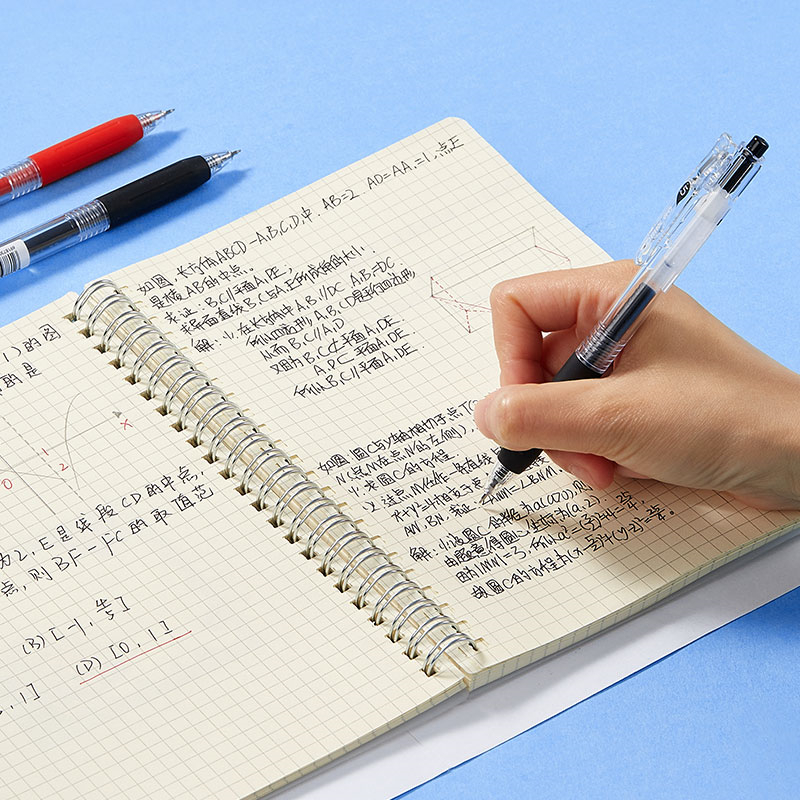 1)的图
的是
0
1
2
x
为2,E是线段CD的中点,
点,则BF-FC的取值范
(B)[-1,
(D)[0,1]
,1]
如图,长方体ABCD-A₁B₁C₁D₁中,AB=2 AD=AA₁=1,点E
是棱AB的中点.
求证:B₁C//平面A₁DE,
求异面直线B₁C与A₁E所成角的大小.
解:(1)在长方体中A₁B₁//DC A₁B₁=DC
所以四边形A₁B₁CD是平行四边形
从而B₁C//A₁D
又因为B₁C⊄平面A₁DE
A₁D⊂平面A₁DE
所以B₁C//平面A₁DE.
如图,圆C与y轴相切于点T(
N(点M在点N的左侧),
(1)求圆C的方程.
(2)过点M任作一条直线
x²+y²=4相交于
AN,BN,求证:∠ANM=∠BNM.
解:(1)设圆C的半径为a(a>0),
由题意得圆心坐标为(a,2).
因为|MN|=3,所以a²=(3/2)²+4=25/4,
故圆C的方程为(x-5/2)²+(y-2)²=25/4。